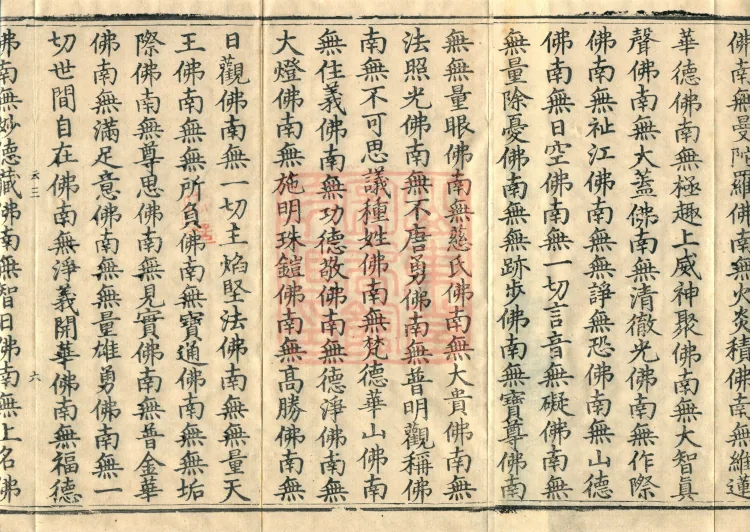 佛南無曼陀羅佛南無火炎積佛南無維蓮
華德佛南無極趣上威神聚佛南無大智真
聲佛南無大蓋佛南無清徹光佛南無作際
佛南無祉江佛南無無諍無恐佛南無山德
佛南無日空佛南無一切言音無礙佛南無
無量除憂佛南無無跡步佛南無寶尊佛南
無無量眼佛南無慈氏佛南無大貴佛南無
法照光佛南無不唐勇佛南無普明觀稱佛
南無不可思議種姓佛南無梵德華山佛南
無住義佛南無功德敬佛南無德淨佛南無
大燈佛南無施明珠鎧佛南無高勝佛南無
日觀佛南無一切主焰堅法佛南無無量天
王佛南無無所負佛南無寶通佛南無無垢
際佛南無尊思佛南無見實佛南無普金華
佛南無滿足意佛南無無量雄勇佛南無一
切世間自在佛南無淨義開華佛南無福德
六
佛南無妙德藏佛南無智日佛南無上名佛